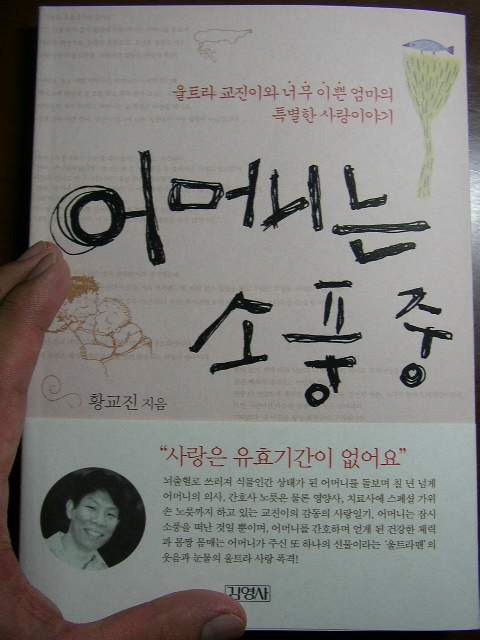 울트라 교진이와 너무 이쁜 엄마의
특별한 사랑이야기
어머니는
소풍 중
황교진 지음
“사랑은 유효기간이 없어요”
뇌출혈로 쓰러져 식물인간 상태가 된 어머니를 돌보며 칠 년 넘게
어머니의 의사, 간호사 노릇은 물론 영양사, 치료사에 스페셜 가위
손 노릇까지 하고 있는 교진이의 감동의 사랑일기. 어머니는 잠시
소풍을 떠난 것일 뿐이며, 어머니를 간호하며 얻게 된 건강한 체력
과 몸짱 몸매는 어머니가 주신 또 하나의 선물이라는 ‘울트라맨’의
웃음과 눈물의 울트라 사랑 폭격!
김영사